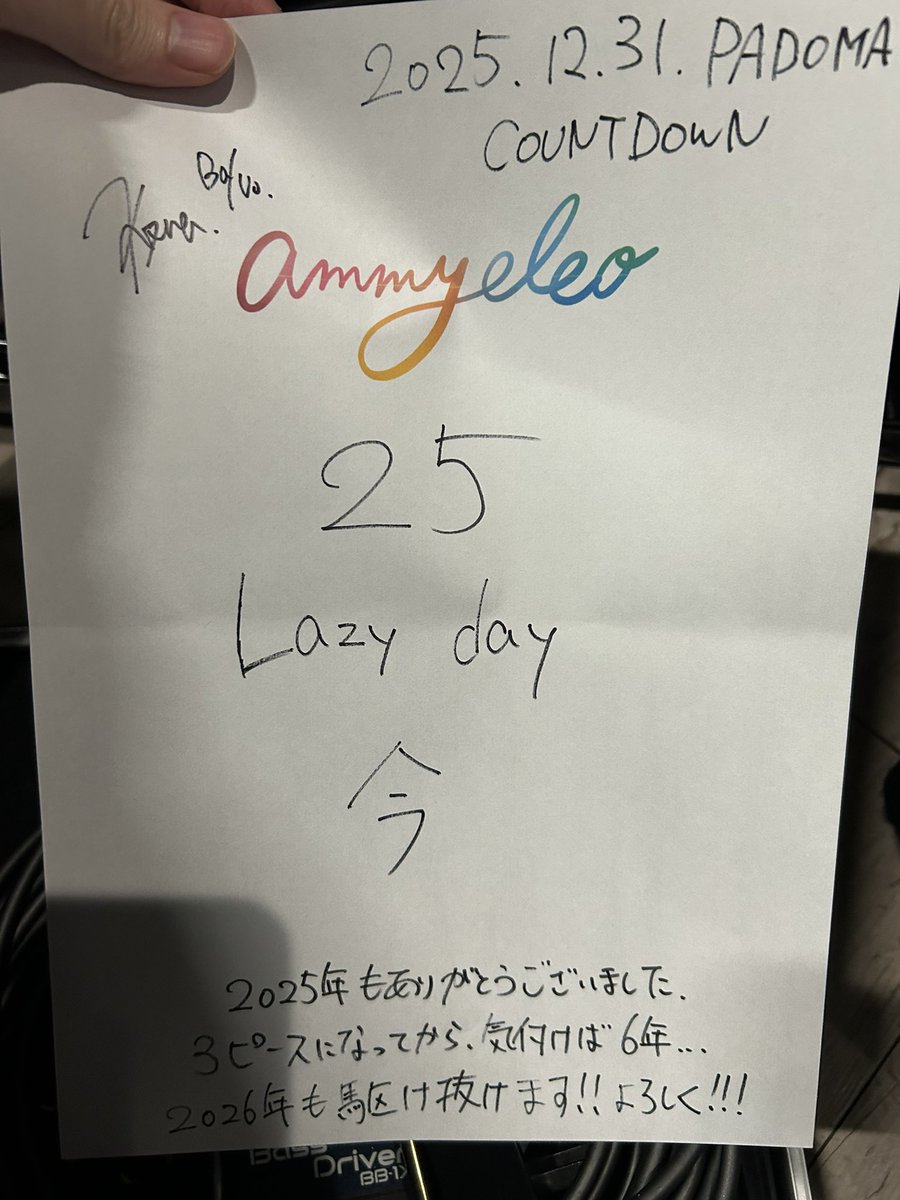 2025.12.31. PADOMA
COUNTDOWN
Ba/Vo.
ammyeleo
25
Lazy day
今
2025年もありがとうございました.
3ピースになってから、気付けば6年...
2026年も駆け抜けます!! よろしく!!!
Bass
Driver
BB-1X